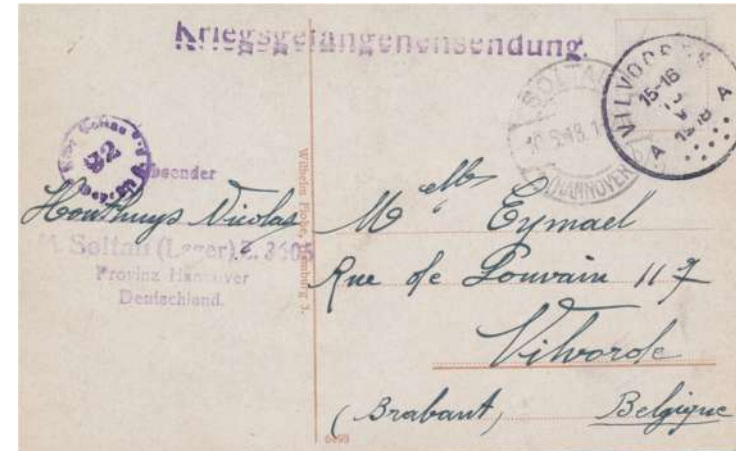 Kriegsgefangenensendung.
SOLTAU
HANNOVER
VILVOORDE
15-16
V
1918
A A
Soltau
22
Absender
Houthuys Nicolas
M. Soltau (Lager) Z. 3605
Provinz Hannover
Deutschland.
Wilhelm Hamburg 3.
Melle Eymael
Rue de Louvain 117
Vilvorde
(Brabant, Belgique